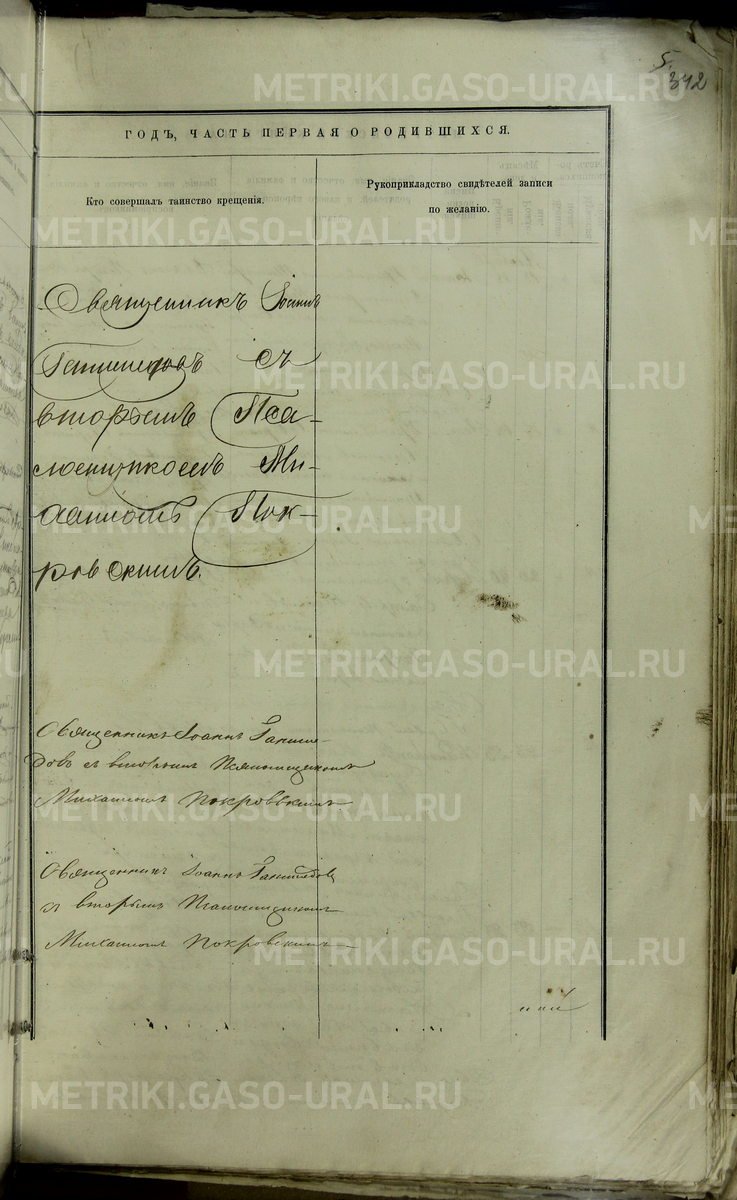 5.
342
ГОДЪ, ЧАСТЬ ПЕРВАЯ О РОДИВШИХСЯ.
Кто совершалъ таинство крещенія.
Рукоприкладство свидѣтелей записи
по желанію.
Священникъ Іоаннъ
съ
вторымъ Пса-
ломщикомъ Ми-
хаиломъ Пок-
ровскимъ.
Священникъ Іоаннъ
съ вторымъ Псаломщикомъ
Михаиломъ Покровскимъ
Священникъ Іоаннъ
съ вторымъ Псаломщикомъ
Михаиломъ Покровскимъ
METRIKI.GASO-URAL.RU